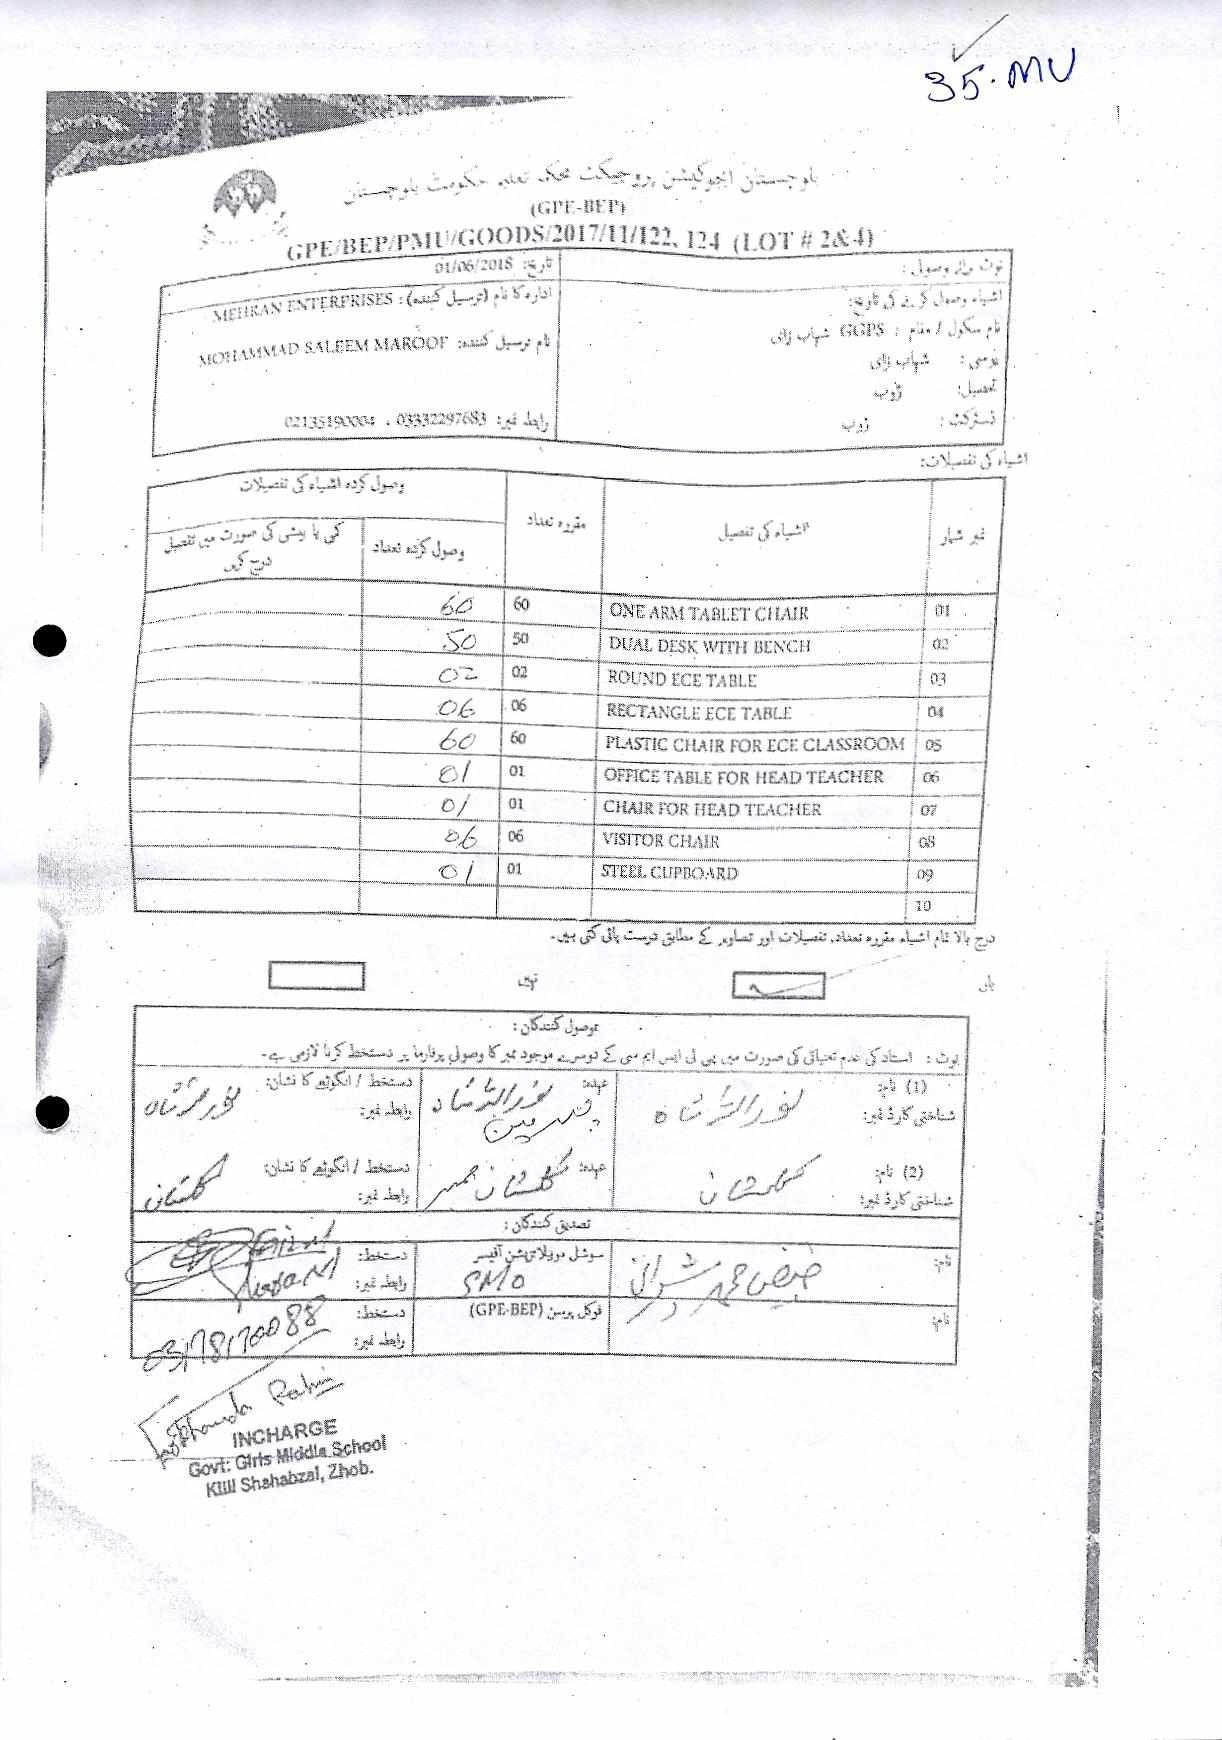 35.MU
بلوچستان ایجوکیشن پروجیکٹ محکمہ تعلیم حکومت بلوچستان
(GPE-BEP)
GPE/BEP/PMU/GOODS/2017/11/122, 124 (LOT # 2&4)
نوٹ برائے وصولی: تاریخ: 01/06/2018
اشیاء وصول کرنے کی تاریخ: ادارہ کا نام (ترسیل کنندہ): MEHRAN ENTERPRISES
نام سکول / مقام : GGPS شہاب زئی نام ترسیل کنندہ: MOHAMMAD SALEEM MAROOF
یوسی: شہاب زئی
تحصیل: ژوب
ڈسٹرکٹ: ژوب رابطہ نمبر: 03332297683 , 02135190004
اشیاء کی تفصیلات:
نمبر شمار اشیاء کی تفصیل مقررہ تعداد وصول کردہ اشیاء کی تفصیلات
وصول کردہ تعداد کمی یا بیشی کی صورت میں تفصیل درج کریں
01 ONE ARM TABLET CHAIR 60 60
02 DUAL DESK WITH BENCH 50 50
03 ROUND ECE TABLE 02 02
04 RECTANGLE ECE TABLE 06 06
05 PLASTIC CHAIR FOR ECE CLASSROOM 60 60
06 OFFICE TABLE FOR HEAD TEACHER 01 01
07 CHAIR FOR HEAD TEACHER 01 01
08 VISITOR CHAIR 06 06
09 STEEL CUPBOARD 01 01
10
درج بالا تمام اشیاء مقررہ تعداد، تفصیلات اور تصاویر کے مطابق درست پائی گئی ہیں۔
ہاں نہیں
موصول کنندگان:
نوٹ: استاد کی عدم تعیناتی کی صورت میں پی ٹی ایس ایم سی کے دوسرے موجود ممبر کا وصولی پرفارما پر دستخط کرنا لازمی ہے۔
(1) نام: عہدہ: دستخط / انگوٹھے کا نشان:
شناختی کارڈ نمبر: رابطہ نمبر:
(2) نام: گلستان عہدہ: گلستان ممبر دستخط / انگوٹھے کا نشان: گلستان
شناختی کارڈ نمبر: رابطہ نمبر:
تصدیق کنندگان:
نام: فیض محمد شیرانی سوشل موبلائزیشن آفیسر دستخط:
SMO رابطہ نمبر:
نام: فوکل پرسن (GPE-BEP) دستخط:
رابطہ نمبر: 03178170088
INCHARGE
Govt: Girls Middle School
Killi Shahabzai, Zhob.